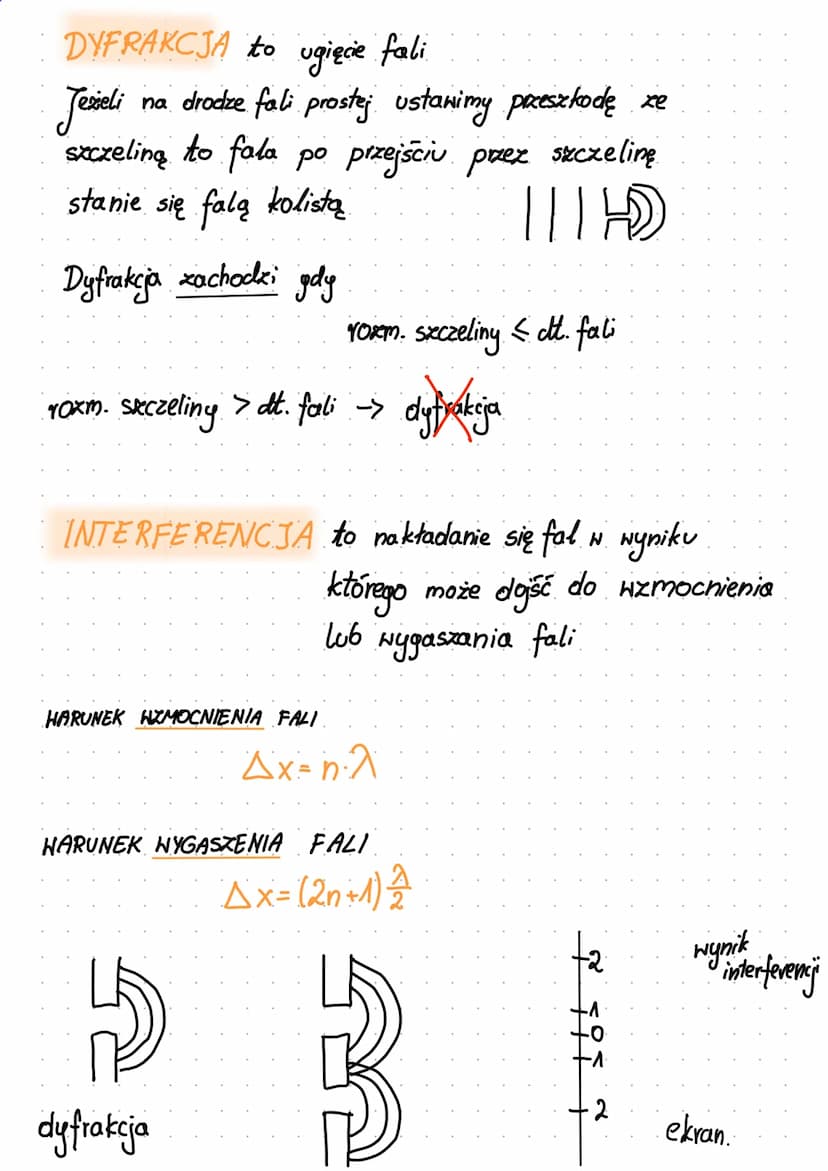 DYFRAKCJA to ugięcie fali
Jeżeli na drodze fali prostej ustawimy przeszkodę ze
szczeliną to fala po przejściu przez szczelinę
stanie się falą kolistą
Dyfrakcja zachodzi gdy
rozm. szczeliny ≤ dł. fali
rozm. szczeliny > dł. fali → dyfrakcja
INTERFERENCJA to nakładanie się fal w wyniku
którego może dojść do wzmocnienia
lub wygaszania fali
WARUNEK WZMOCNIENIA FALI
Δx = n·λ
WARUNEK WYGASZENIA FALI
Δx = (2n+1) λ/2
wynik
interferencji
2
1
0
1
2
dyfrakcja
ekran.